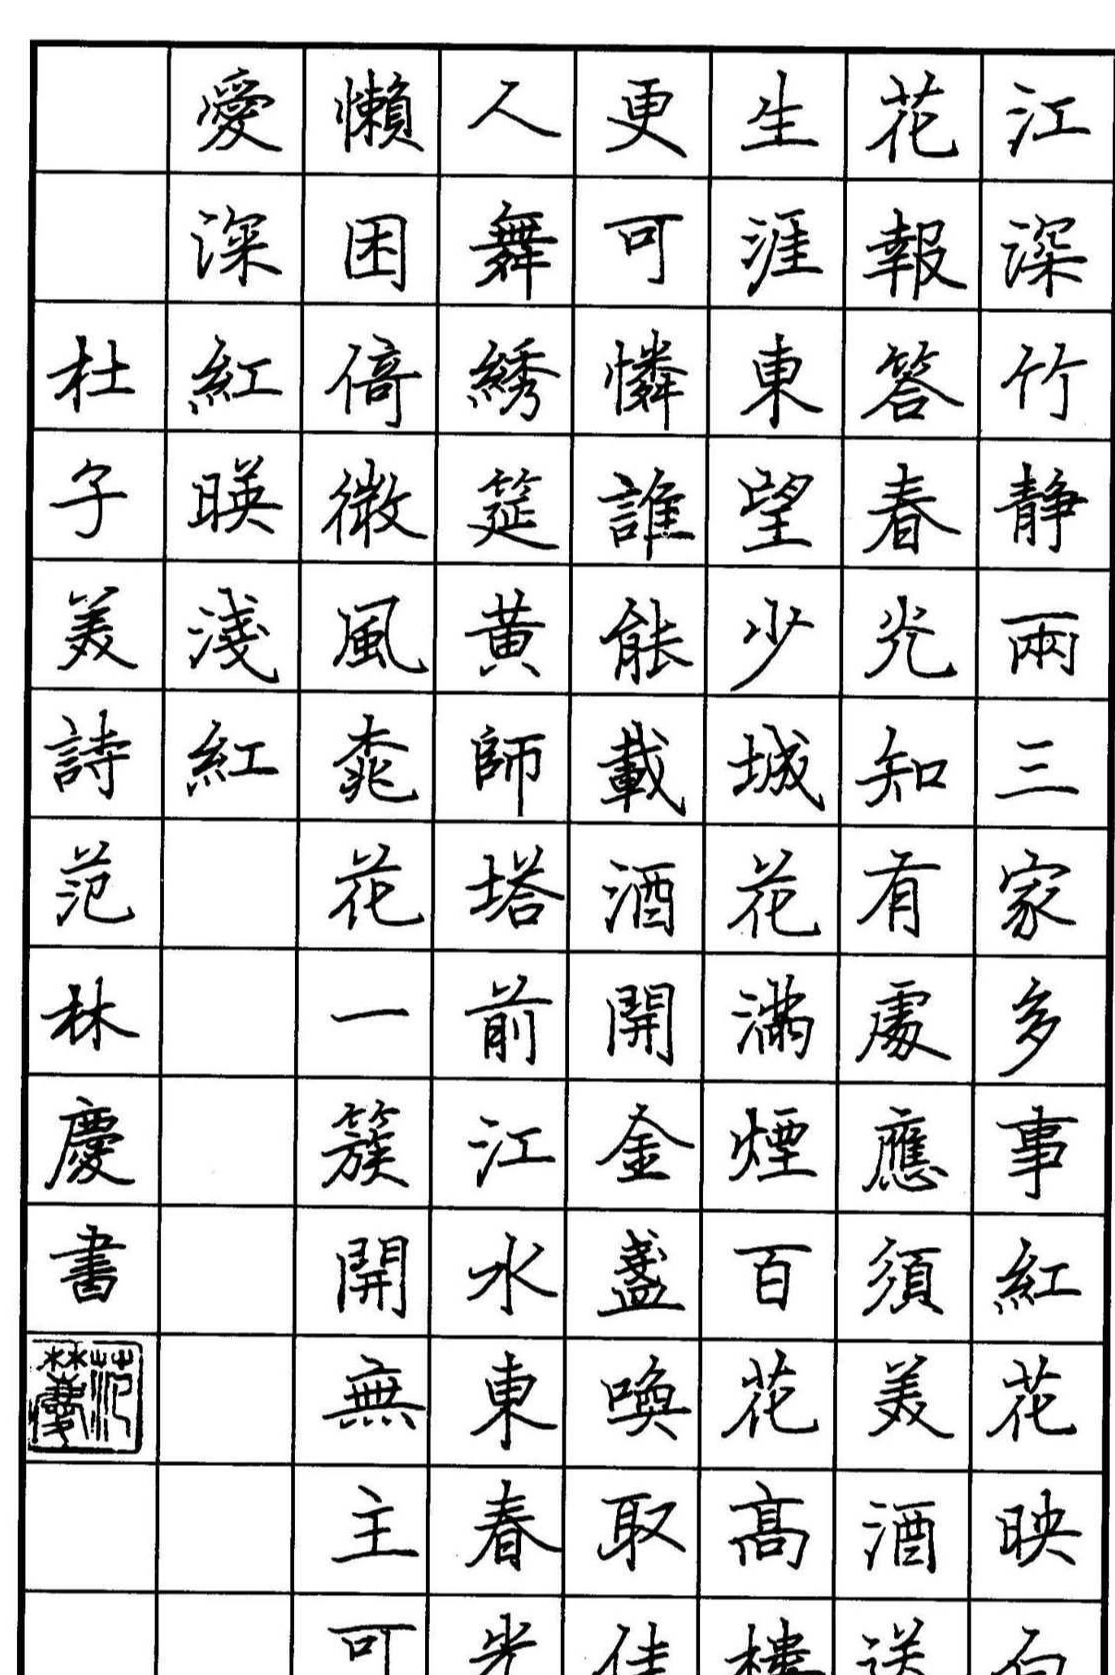 江深竹静兩三家多事紅花映白
花報答春光知有處應須美酒送
生涯東望少城花滿煙百花髙樓
更可憐誰能載酒開金盞喚取佳
人舞綉筵黄師塔前江水東春光
懶困倚微風桃花一簇開無主可
愛深紅暎淺紅
杜子美詩范林慶書